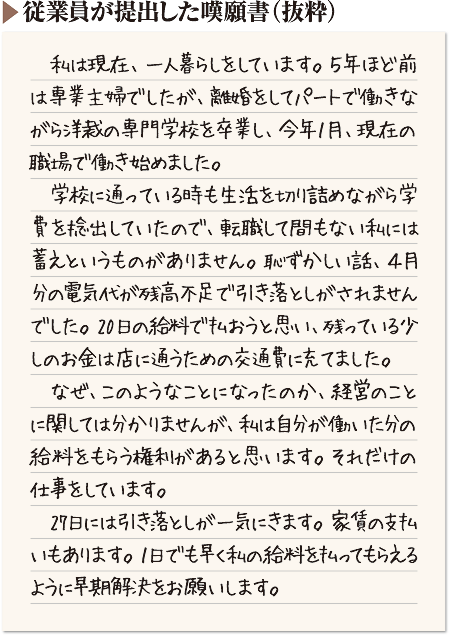 ▶従業員が提出した嘆願書(抜粋)
私は現在、一人暮らしをしています。5年ほど前
は専業主婦でしたが、離婚をしてパートで働きな
がら洋裁の専門学校を卒業し、今年1月、現在の
職場で働き始めました。
学校に通っている時も生活を切り詰めながら学
費を捻出していたので、転職して間もない私には
蓄えというものがありません。恥ずかしい話、4月
分の電気代が残高不足で引き落としがされません
でした。20日の給料で払おうと思い、残っている少
しのお金は店に通うための交通費に充てました。
なぜ、このようなことになったのか、経営のこと
に関しては分かりませんが、私は自分が働いた分の
給料をもらう権利があると思います。それだけの
仕事をしています。
27日には引き落としが一気にきます。家賃の支払
いもあります。1日でも早く私の給料を払ってもらえる
ように早期解決をお願いします。